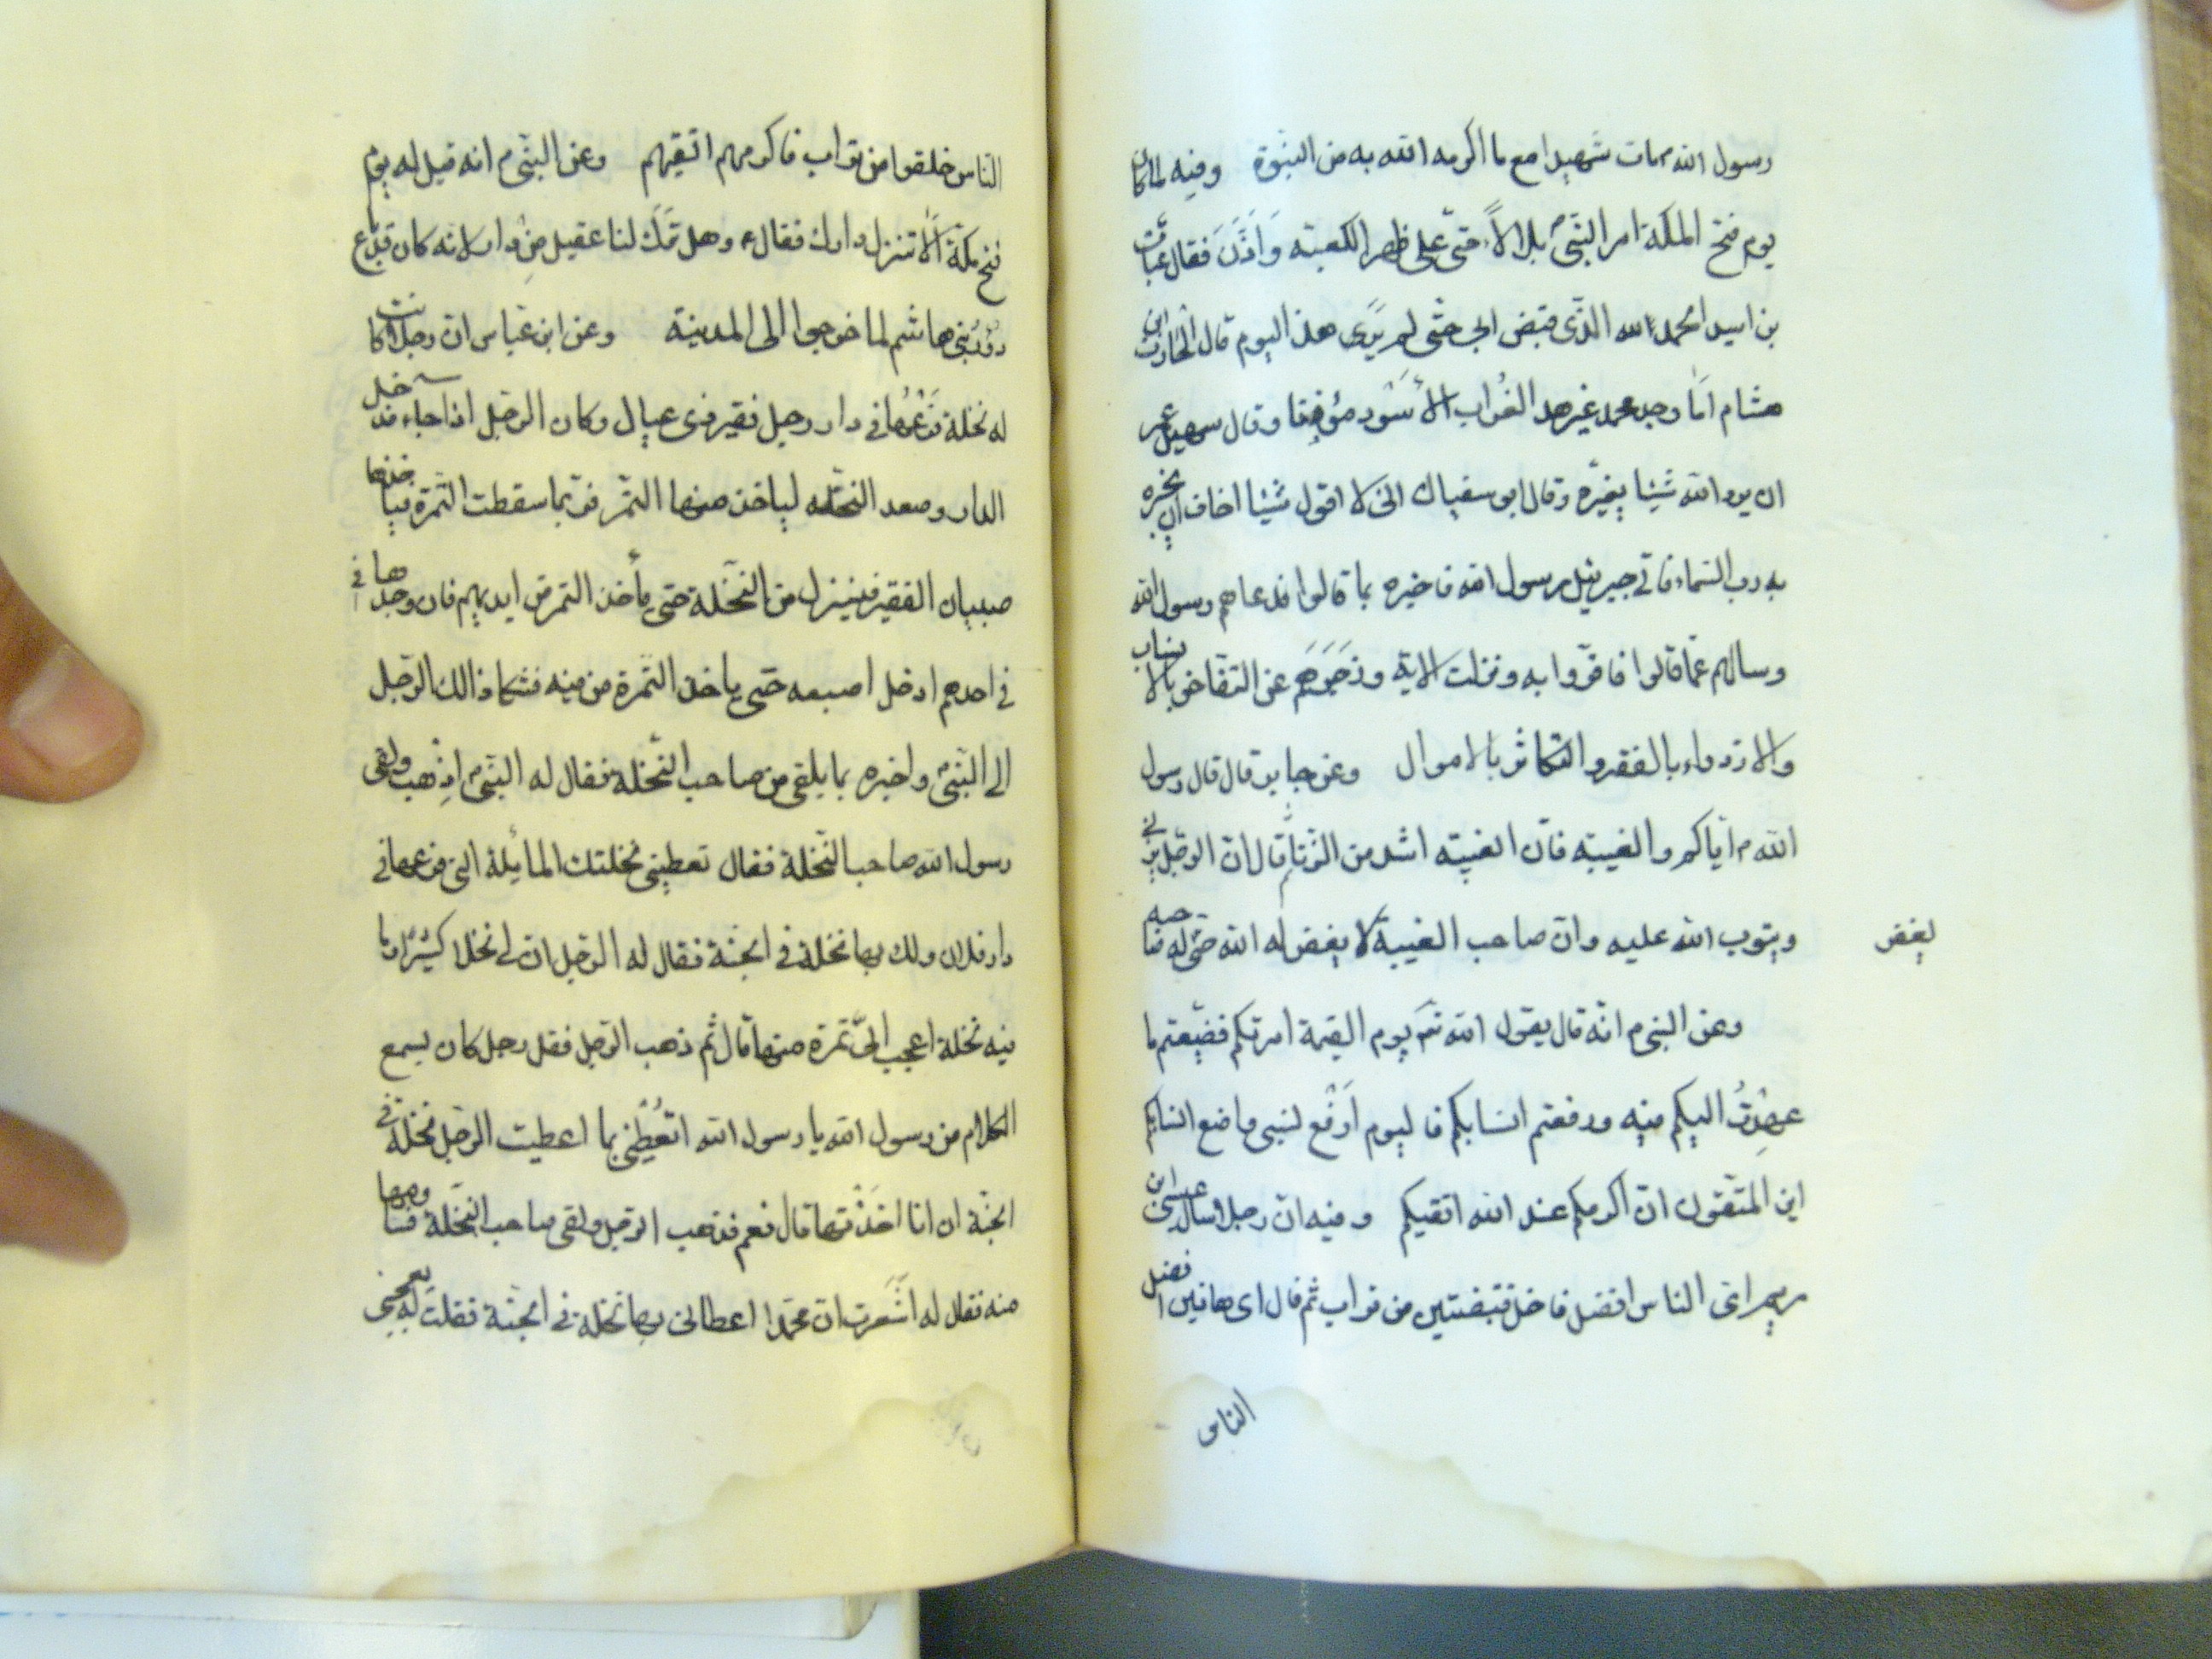 رسول الله م مات شهيدا مع ما اكرمه الله به من النبوة وفيه لما كان
يوم فتح المكة امر النبى م بلالاً حتى على ظهر الكعبة وَاَذَّنَ فقال عتاب
بن اسيد المحمد لله الذى قبض ابى حتى لم يرى هذا اليوم قال الحارث ابن
هشام امّا وجد محمد غير هذا الغُراب الأسْود مؤذنا وقال سهيل بن عمر
ان يرد الله شيئا يغيّره وقال ابو سفيان انى لا اقول شيئا اخاف ان يخبره
به رب السماء فاتى جبرئيل رسول الله فاخبره بما قالوا فدعاهم رسول الله
وسالهم عمّا قالوا فاقرّوا به ونزلت الاية وزجرهم عن التفاخر بالانساب
والازدواء بالفقر والتكاثر بالاموال وعن جابر قال قال رسول
الله م اياكم والغيبة فان الغيبة اشد من الزنا ثم قال ان الرجل يزنى
ويتوب الله عليه وان صاحب الغيبة لا يغفر له الله حتى له صاحبه
يغفر
وعن النبى م انه قال يقول الله تع يوم القيمة امرتكم فضيّعتم ما
عهدتُ اليكم فيه ورفعتم انسابكم فاليوم ارفع نسبى واضع انسابكم
اين المتقون ان اكرمكم عند الله اتقيكم وفيه ان رجلا سال عيسى ابن
مريم اى الناس افضل فاخذ قبضتين من تراب ثم قال اى هاتين افضل
الناس
الناس خلقوا من تراب فاكرمهم اتقيهم وعن النبى م انه قيل له يوم
فتح مكة الا تنزل دارك فقال ع وهل تَرَكَ لنا عقيل مِنْ دار لانه كان قد باع
دُورَ بَنى هاشم لما خرجوا الى المدينة وعن ابن عباس ان رجلا كانت
له نخلة فَرْعُها فى دار رجل فقير ذى عيال وكان الرجل اذا جاء فدخل
الدار وصعد النخله لياخذ منها التمر فربما سقطت التمرة فياخذها
صبيان الفقير فينزل من النخلة حتى يأخذ التمر من ايديهم فان وجدها فى
فى احدهم ادخل اصبعه حتى ياخذ التمرة من فيه فشكا ذالك الرجل
الى النبى م واخبره بما يلقى من صاحب النخلة فقال له النبى م اذهب ولقى
رسول الله صاحب النخلة فقال تعطينى نخلتك المائلة التى فرعها فى
دار فلان ولك بها نخلة فى الجنة فقال له الرجل ان لى نخلا كثيرا وما
فيه نخلة اعجب الىّ تمرة منها قال ثم ذهب الرجل فقل رجل كان يسمع
الكلام من رسول الله يا رسول الله اتُعْطِنى بما اعطيت الرجل نخلة فى
الجنة ان انا اخَذْتها قال نعم فذهب الرجل ولقى صاحب النخلة فساومها
منه فقال له اشَعَرت ان محمدا اعطانى بها نخلة فى الجنة فقلت له يعجبنى